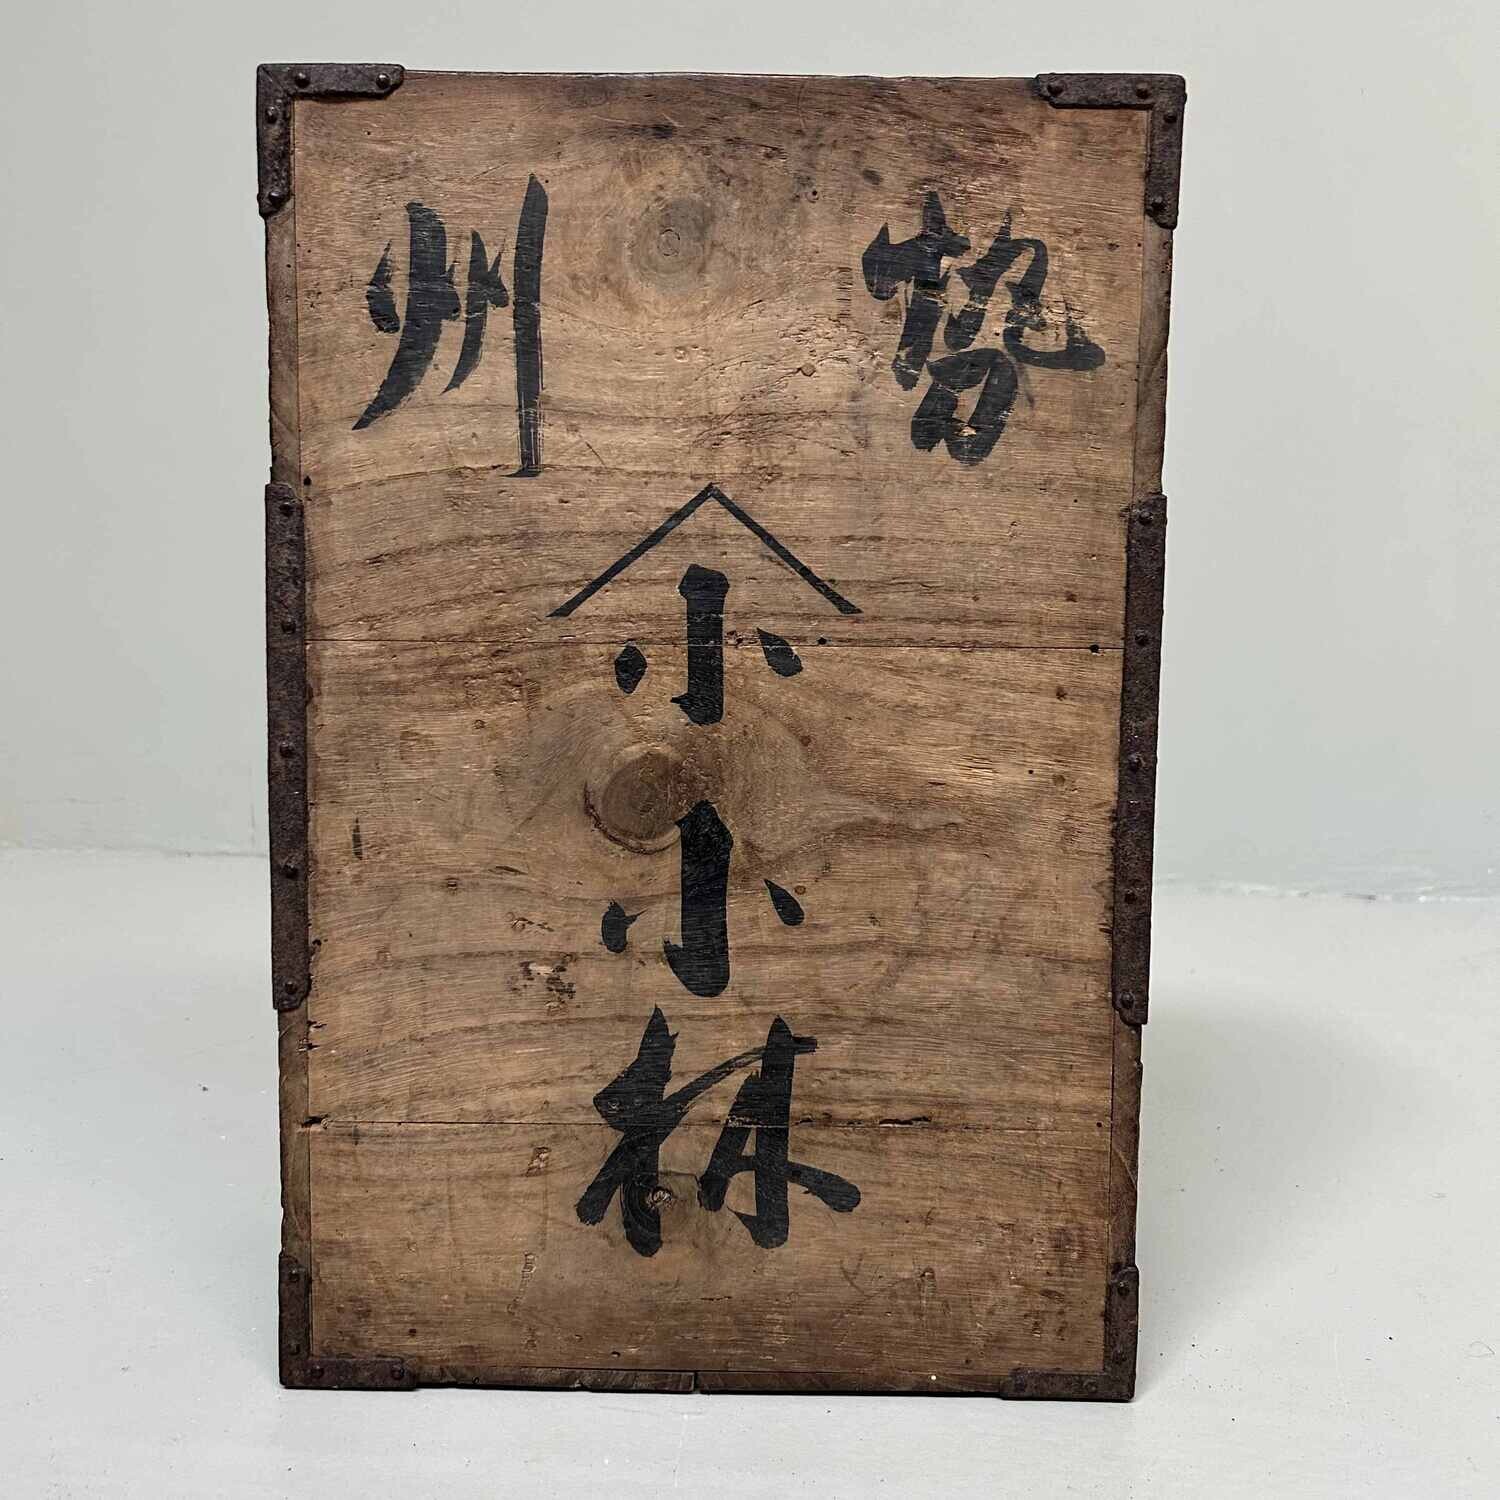 勢州
小
小林